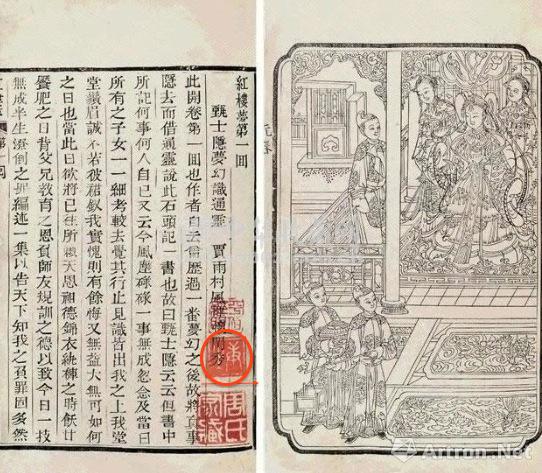 紅樓夢第一回
甄士隱夢幻識通靈　賈雨村風塵懷閨秀
此開卷第一回也作者自云曾歷過一番夢幻之後故將真事
隱去而借通靈說此石頭記一書也故曰甄士隱云云但書中
所記何事何人自己又云今風塵碌碌一事無成忽念及當日
所有之女子一一細考較去覺其行止見識皆出我之上我堂
堂鬚眉誠不若彼裙釵我實愧則有餘悔又無益大無可如何
之日也當此日欲將已往所賴天恩祖德錦衣紈袴之時飫甘
饜肥之日背父兄教育之恩負師友規訓之德以致今日一技
無成半生潦倒之罪編述一集以告天下知我之負罪固多然
第一回
周氏家藏
元春
Artron.Net